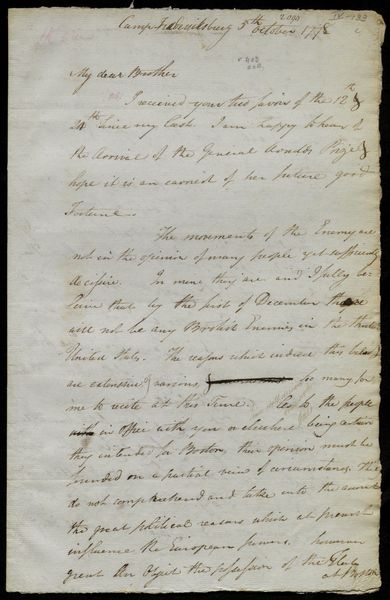 Camp Fredricksburg 5th October 1778
My dear Brother
I received your two favors of the 12th &
24th since my last. I am happy to hear of
the arrival of the General Arnolds Prize &
hope it is an earnest of her future good
Fortune.
The movements of the Enemy are
not in the opinion of many people yet sufficiently
decisive. In mine they are and I fully be-
lieve that by the first of December there
will not be any British Enemies in the thirteen
United States. The reasons which induced this belief
are extensive & various, too many for
me to recite at this Time. As to the people
in office with you or elsewhere being certain
they intended for Boston, their opinion must be
founded on a partial view of circumstances. They
do not comprehend and take into the account
the great political reasons which at present
influence the European powers. However
great an object the possession of the Fleet
at Boston